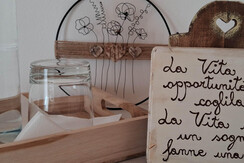 La Vita
opportunite
coglila
La Vita
un sogn
fanne una